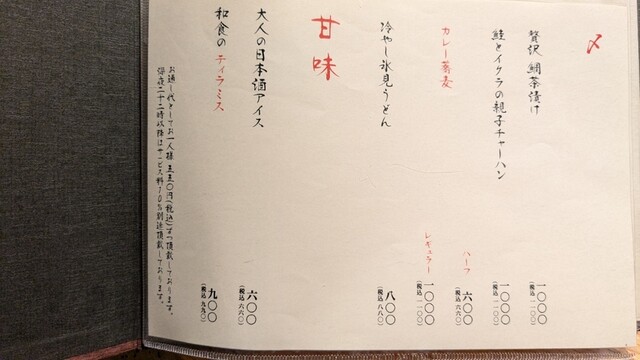 〆
贅沢 鯛茶漬け 一〇〇〇 (税込 一一〇〇)
鮭とイクラの親子チャーハン 一〇〇〇 (税込 一一〇〇)
カレー蕎麦
ハーフ 六〇〇 (税込 六六〇)
レギュラー 一〇〇〇 (税込 一一〇〇)
冷やし氷見うどん 八〇〇 (税込 八八〇)
甘味
大人の日本酒アイス 六〇〇 (税込 六六〇)
和食のティラミス 九〇〇 (税込 九九〇)
お通し代としてお一人様 五五〇円(税込)ずつ頂戴しております。
深夜二十二時以降はサービス料10%別途頂戴しております。